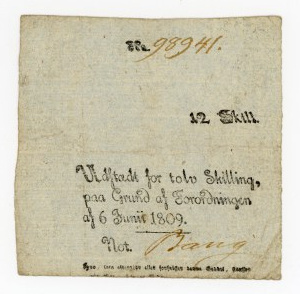 No. 98941.
12 Skill.
Udstædt for tolv Skilling,
paa Grund af Forordningen
af 6 Junii 1809.
Not. Bang